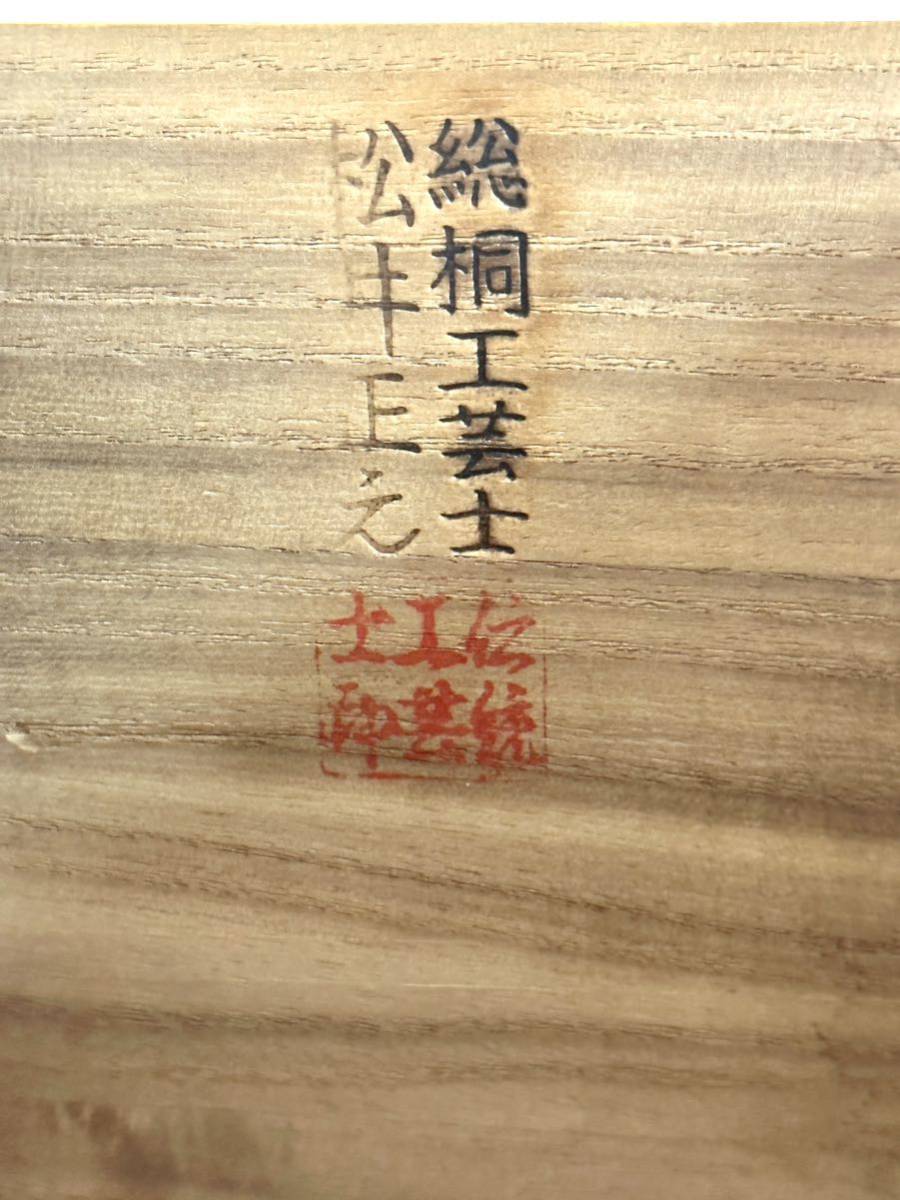 総桐工芸士
松井正元
伝統
工芸
士印